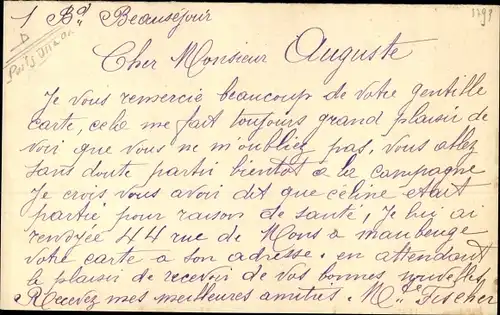 1 Bd Beauséjour
1792
Paris
Cher Monsieur Auguste
Je vous remercie beaucoup de votre gentille
carte, cela me fait toujours grand plaisir de
voir que vous ne m'oubliez pas. Vous allez
sans doute partir bientôt à la campagne
Je crois vous avoir dit que céline était
partie pour raison de santé, je lui ai
renvoyée 44 rue de Mons à maubeuge
votre carte à son adresse. en attendant
le plaisir de recevoir de vos bonnes nouvelles
Recevez mes meilleures amitiés. Mlle Fischer